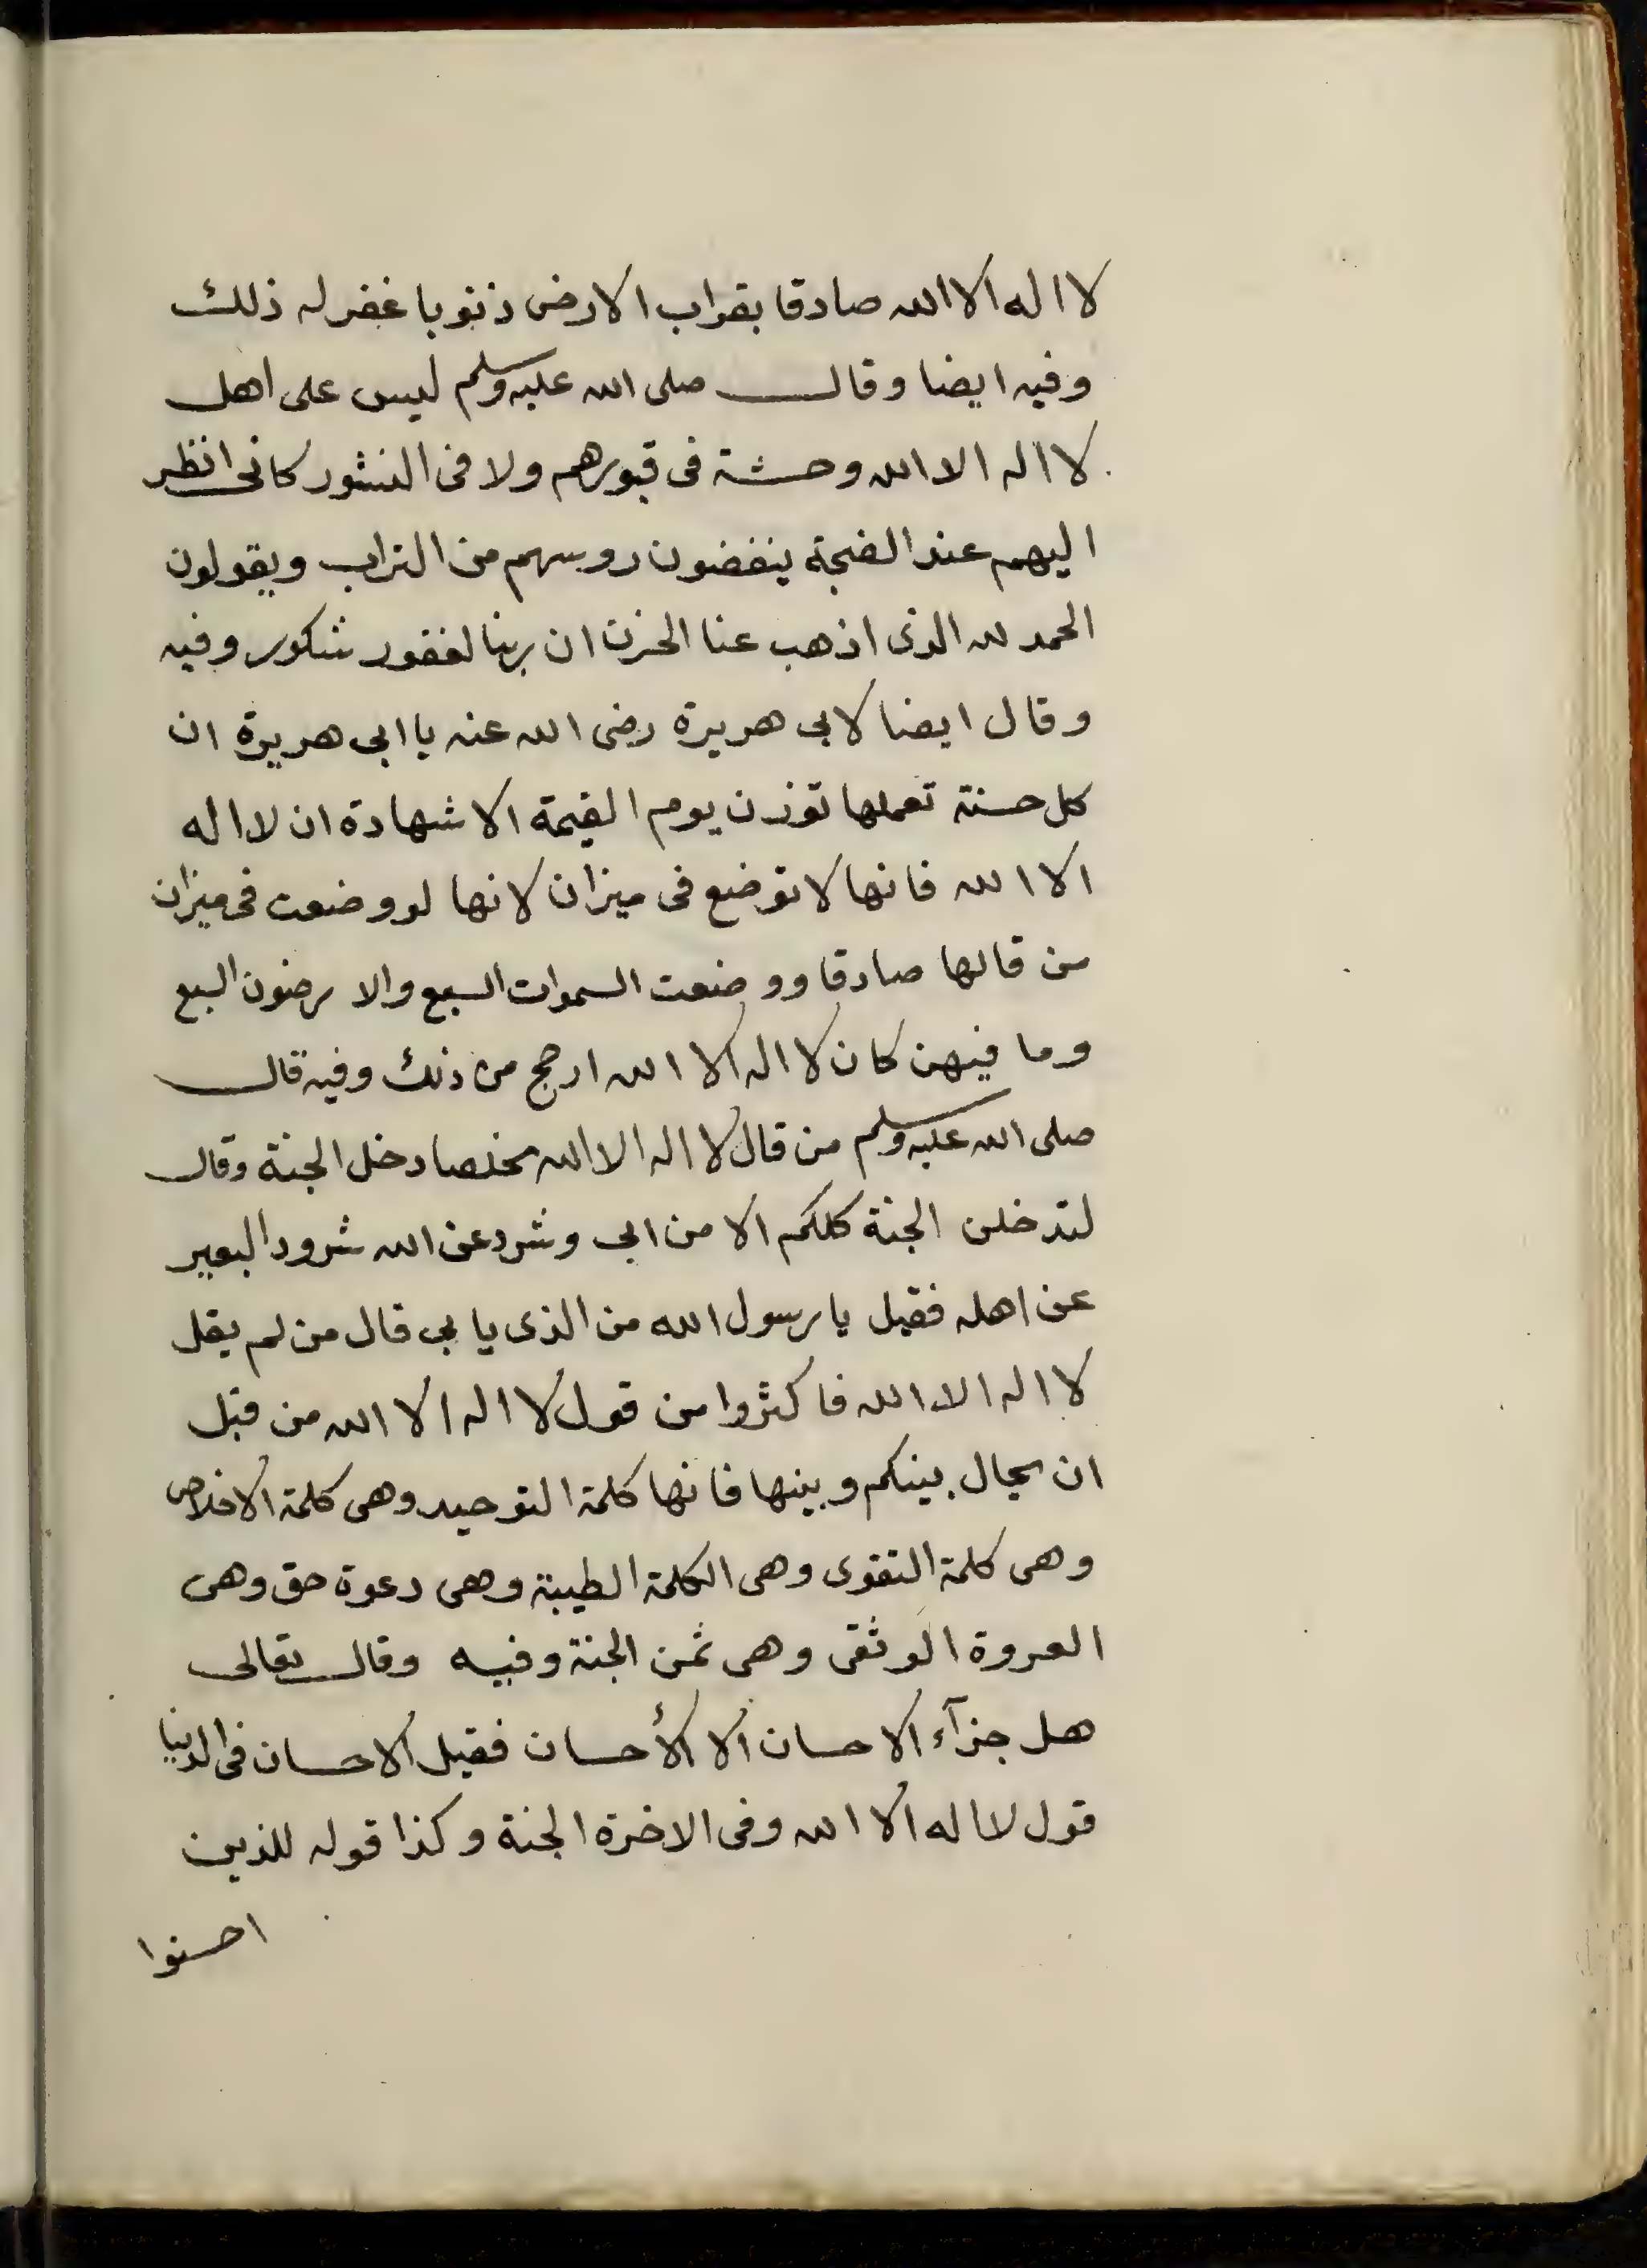 لا اله الا الله صادقا بقراب الارض ذنوبا غفر له ذلك
وفيه ايضا وقال صلى الله عليه وسلم ليس على اهل
لا اله الا الله وحشة فى قبورهم ولا فى النشور كانى انظر
اليهم عند الضجة ينفضون روسهم من التراب ويقولون
الحمد لله الذى اذهب عنا الحزن ان ربنا لغفور شكور وفيه
وقال ايضا لابى هريرة رضى الله عنه يا ابى هريرة ان
كل حسنة تعملها توزن يوم القيمة الا شهادة ان لا اله
الا الله فانها لا توضع فى ميزان لانها لو وضعت فى ميزان
من قالها صادقا ووضعت السموات السبع والارضون السبع
وما فيهن كان لا اله الا الله ارجح من ذلك وفيه قال
صلى الله عليه وسلم من قال لا اله الا الله مخلصا دخل الجنة وقال
لتدخلن الجنة كلكم الا من ابى وشرد عن الله شرود البعير
عن اهله فقيل يا رسول الله من الذى يابى قال من لم يقل
لا اله الا الله فاكثروا من قول لا اله الا الله من قبل
ان يحال بينكم وبينها فانها كلمة التوحيد وهى كلمة الاخلاص
وهى كلمة التقوى وهى الكلمة الطيبة وهى دعوة حق وهى
العروة الوثقى وهى ثمن الجنة وفيه وقال تعالى
هل جزآء الاحسان الا الأحسان فقيل الاحسان فى الدنيا
قول لا اله الا الله وفى الاخرة الجنة وكذا قوله للذين
احسنوا